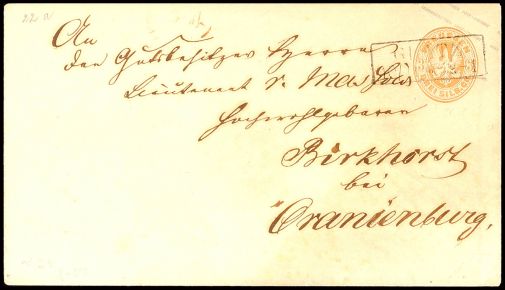 22 a
An
den Gutsbesitzer Herrn
Lieutenant v.
Hochwohlgeboren
Birkhorst
bei
Oranienburg.